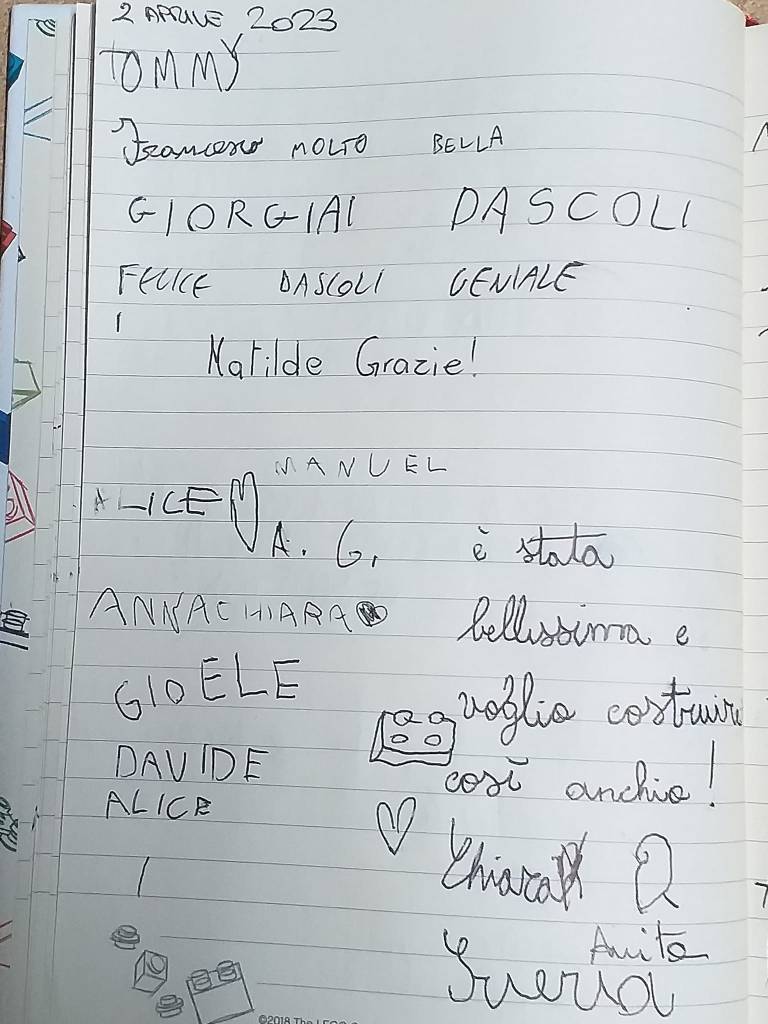 2 APRILE 2023
TOMMY
Francesco MOLTO BELLA
GIORGIAI DASCOLI
FELICE DASCOLI GENIALE
Matilde Grazie!
MANUEL
ALICE
A. G.
ANNACHIARA
GIOELE
DAVIDE
ALICE
è stata
bellissima e
voglio costruire
così anchio!
Chiara
Anita
©2018 The LEGO